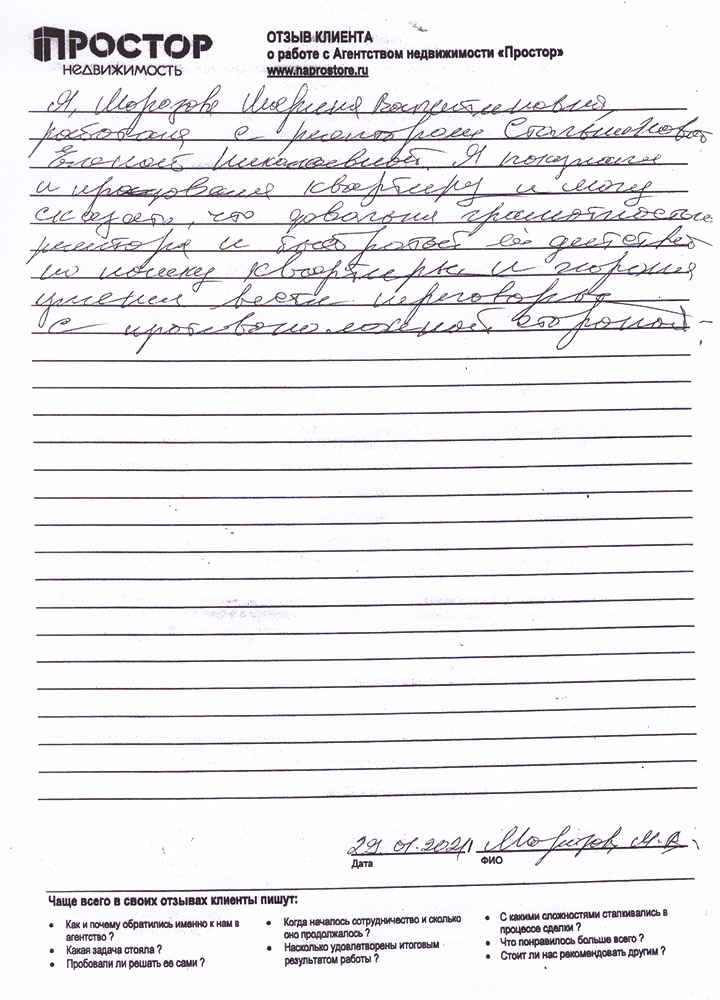 ПРОСТОР
НЕДВИЖИМОСТЬ
ОТЗЫВ КЛИЕНТА
о работе с Агентством недвижимости «Простор»
www.naprostore.ru
Я, Морозова Марина Валентиновна,
работала с риэлтором
Еленой Николаевной. Я покупала
и продавала квартиру и могу
сказать, что довольна грамотностью
риэлтора и быстротой её действий
по поиску квартиры и хорошо
умении вести переговоры
с противоположной стороной.
29.01.2021 М.В.
Дата ФИО
Чаще всего в своих отзывах клиенты пишут:
• Как и почему обратились именно к нам в
агентство ?
• Какая задача стояла ?
• Пробовали ли решать ее сами ?
• Когда началось сотрудничество и сколько
оно продолжалось ?
• Насколько удовлетворены итоговым
результатом работы ?
• С какими сложностями сталкивались в
процессе сделки ?
• Что понравилось больше всего ?
• Стоит ли нас рекомендовать другим ?